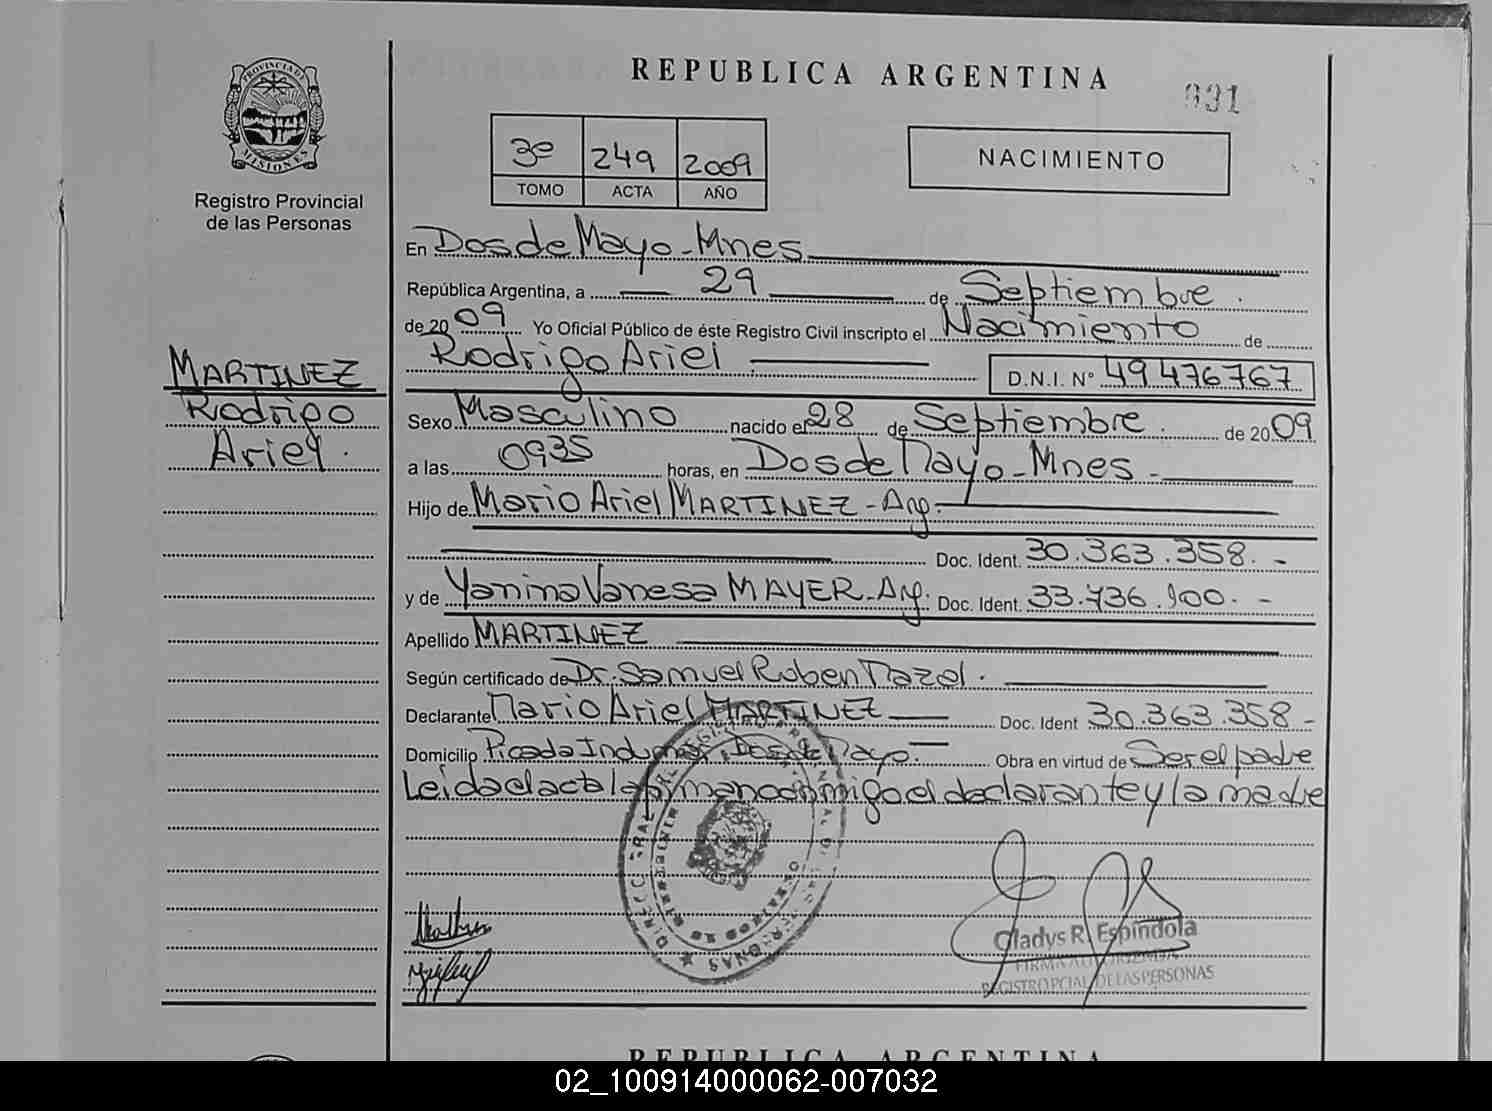 PROVINCIA DE
MISIONES
Registro Provincial
de las Personas
REPUBLICA ARGENTINA
891
3º 249 2009
TOMO ACTA AÑO
NACIMIENTO
En Dos de Mayo - Mnes
República Argentina, a 29 de Septiembre.
de 2009 Yo Oficial Público de éste Registro Civil inscripto el Nacimiento de
Rodrigo Ariel D.N.I. Nº 49476767
MARTINEZ
Rodrigo
Ariel.
Sexo Masculino nacido el 28 de Septiembre. de 2009
a las 0935 horas, en Dos de Mayo - Mnes -
Hijo de Mario Ariel MARTINEZ - Arg.
Doc. Ident. 30.363.358. -
y de Yanina Vanesa MAYER - Arg. Doc. Ident. 33.736.900. -
Apellido MARTINEZ
Según certificado de Dr. Samuel Ruben Mazal.
Declarante Mario Ariel MARTINEZ Doc. Ident 30.363.358 -
Domicilio Picada Indumar Dos de Mayo. Obra en virtud de Ser el padre
Leida el acta la firman conmigo el declarante y la madre
Gladys R. Espíndola
FIRMA AUTORIZADA
REGISTRO PCIAL. DE LAS PERSONAS
REPUBLICA ARGENTINA
02_100914000062-007032